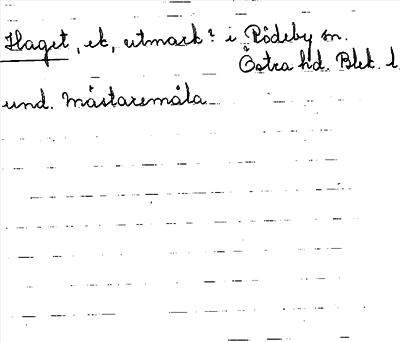 Haget, ek, utmark? i Rödeby sn.
Östra hd. Blek. l.
und. Mästaremåla